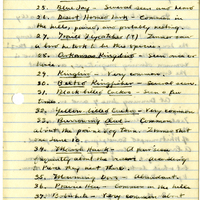 25. Blue Jay - Several seen and heard
26. Desert Horned Lark - Common in
the hills, pairing and probably nesting.
27. Traill Flycatcher (?) -
a bird he took to be this species.
28. Arkansas Kingbird - Seen
29. Kingbird - Very common.
30. Belted Kingfisher - Several seen.
31. Black Billed Cuckoo - Seen a
few times.
32. Yellow Billed Cuckoo - Very common
33. Burrowing Owl - Common
about the prairie dog towns.
June 10.
34. Marsh Hawk - A pair seen
frequently about the
there they nest there.
35. Mourning Dove - Abundant.
36. Prairie Hen - Common in the hills
37. Bobwhite - Very common about